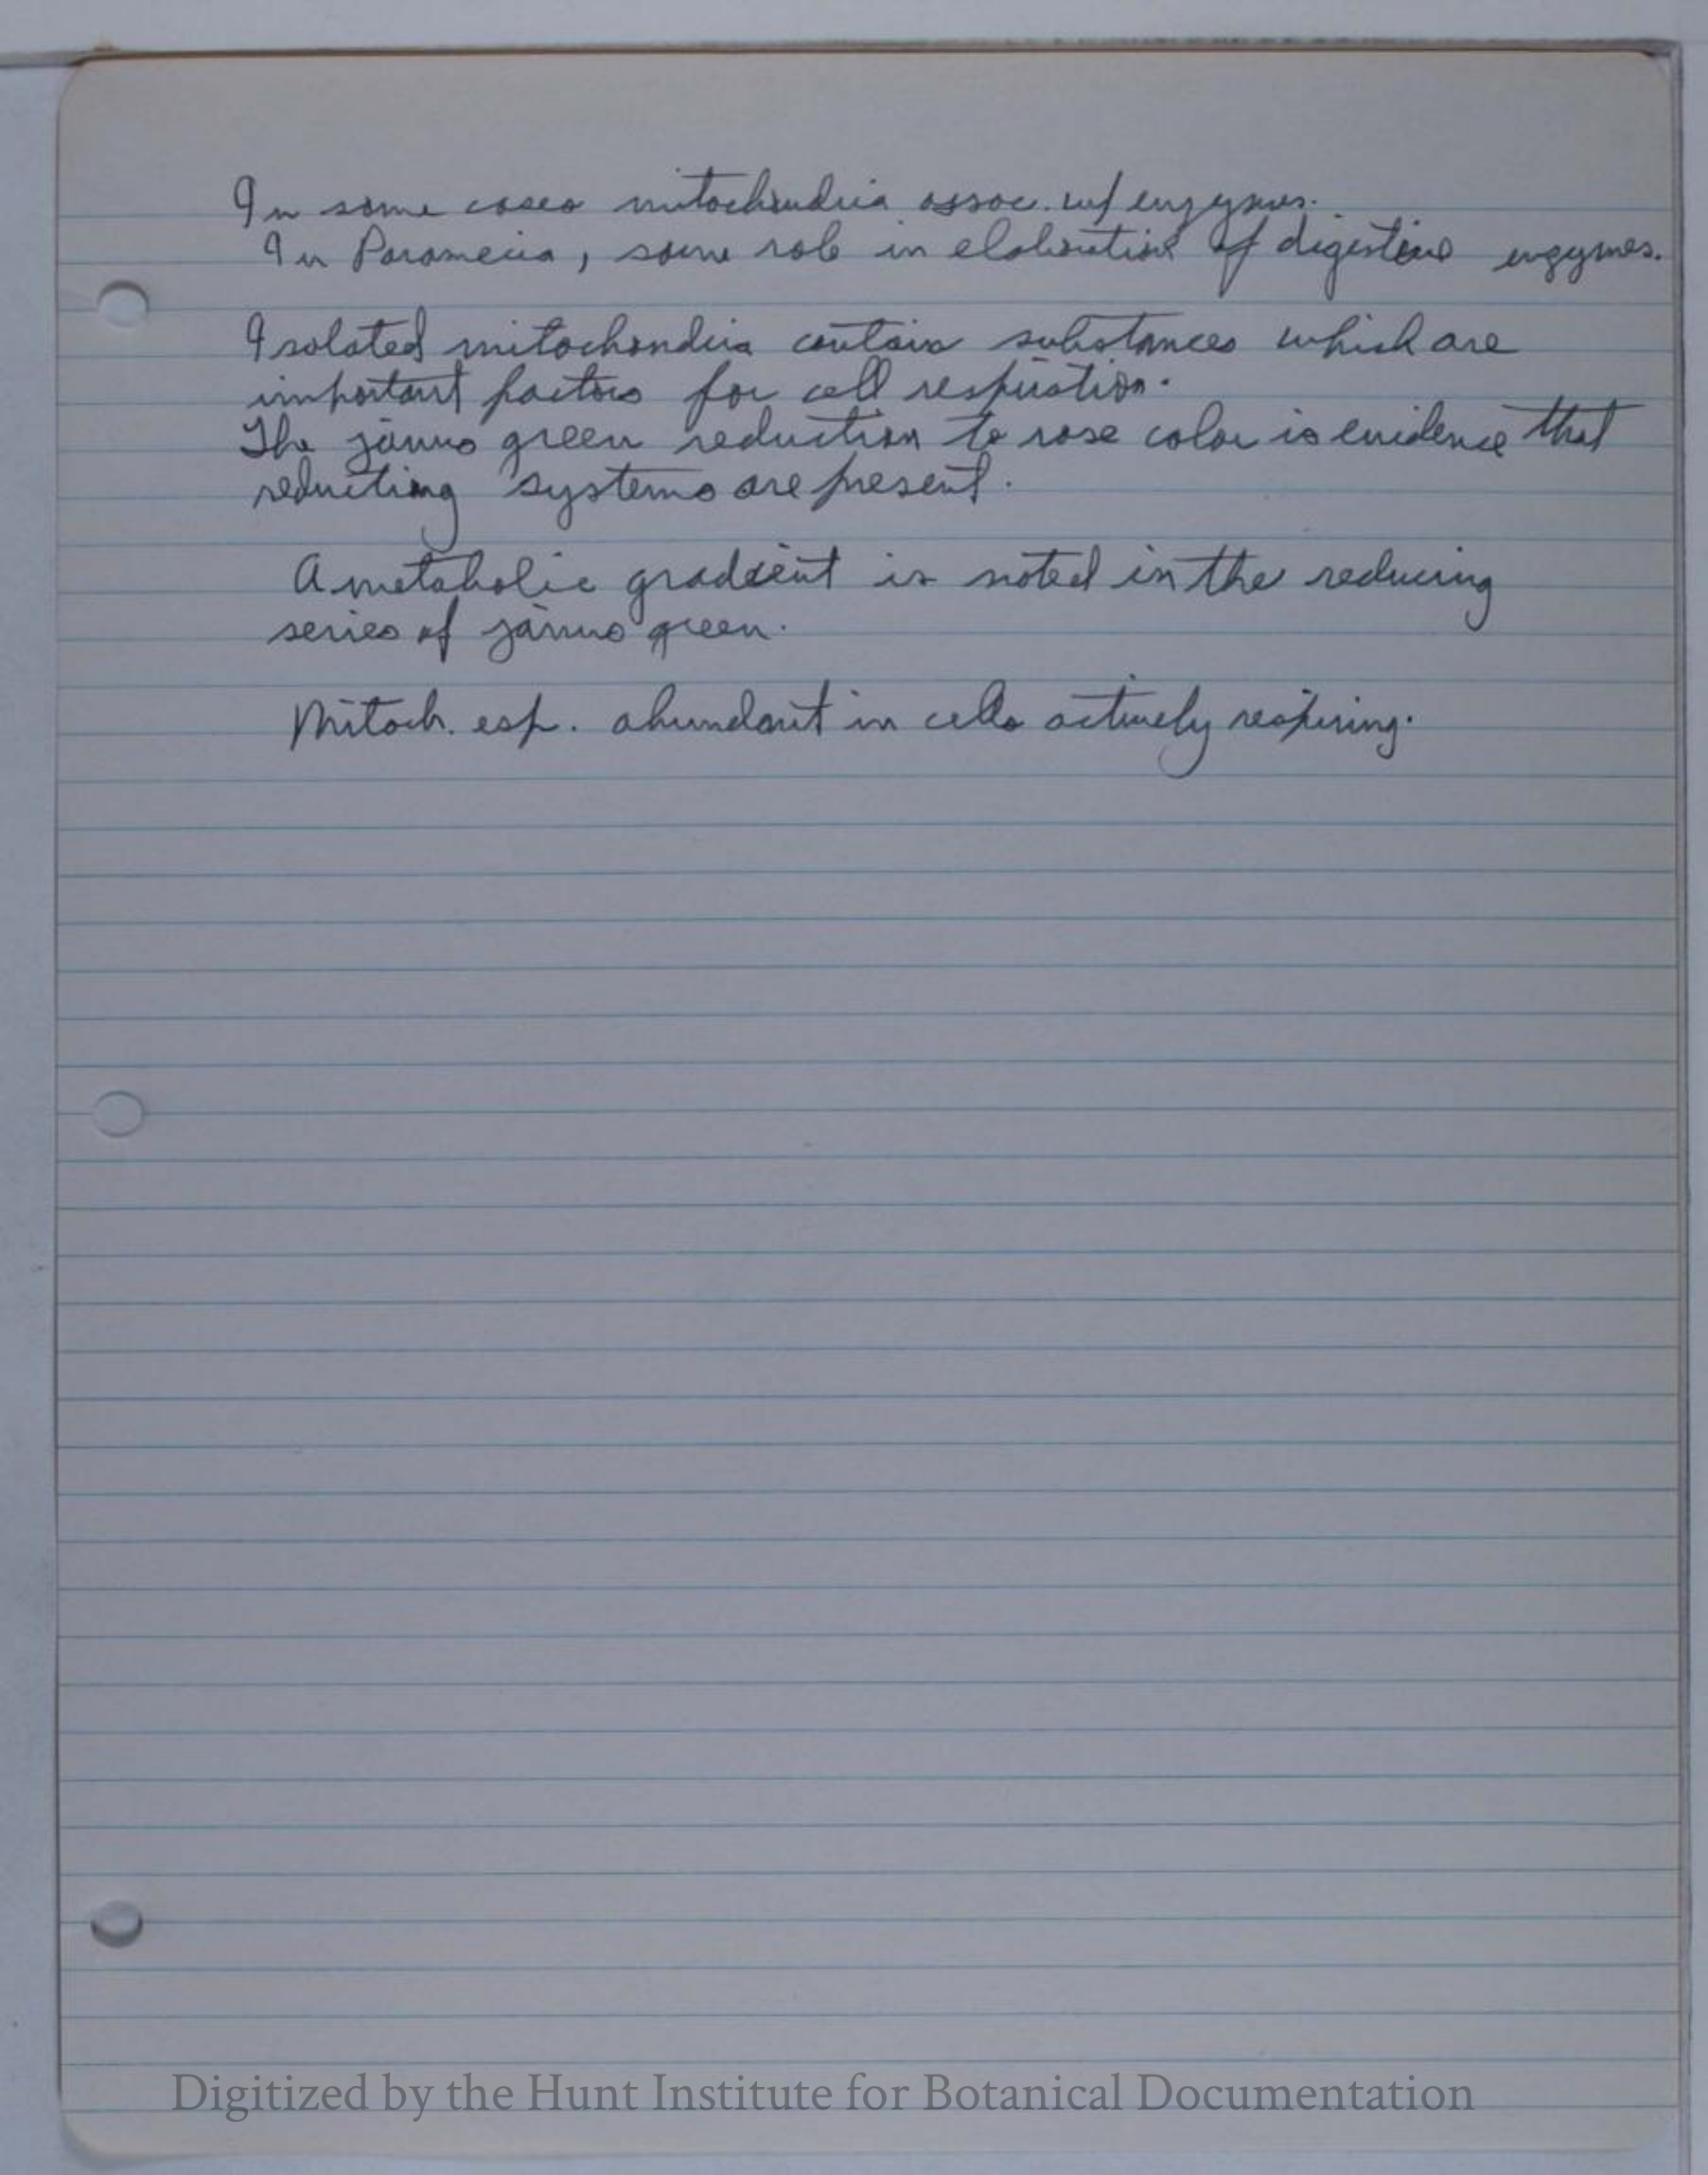 In some cases mitochondria assoc. w/ enzymes.
In Paramecia, some role in elaboration of digestive enzymes.
Isolated mitochondria contain substances which are
important factors for cell respiration.
The janus green reduction to rose color is evidence that
reducting systems are present.
A metabolic gradient is noted in the reducing
series of janus green.
Mitoch. esp. abundant in cells actively respiring.
Digitized by the Hunt Institute for Botanical Documentation